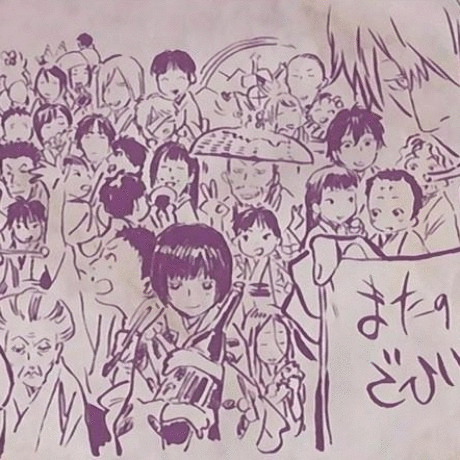 またの
ごひい